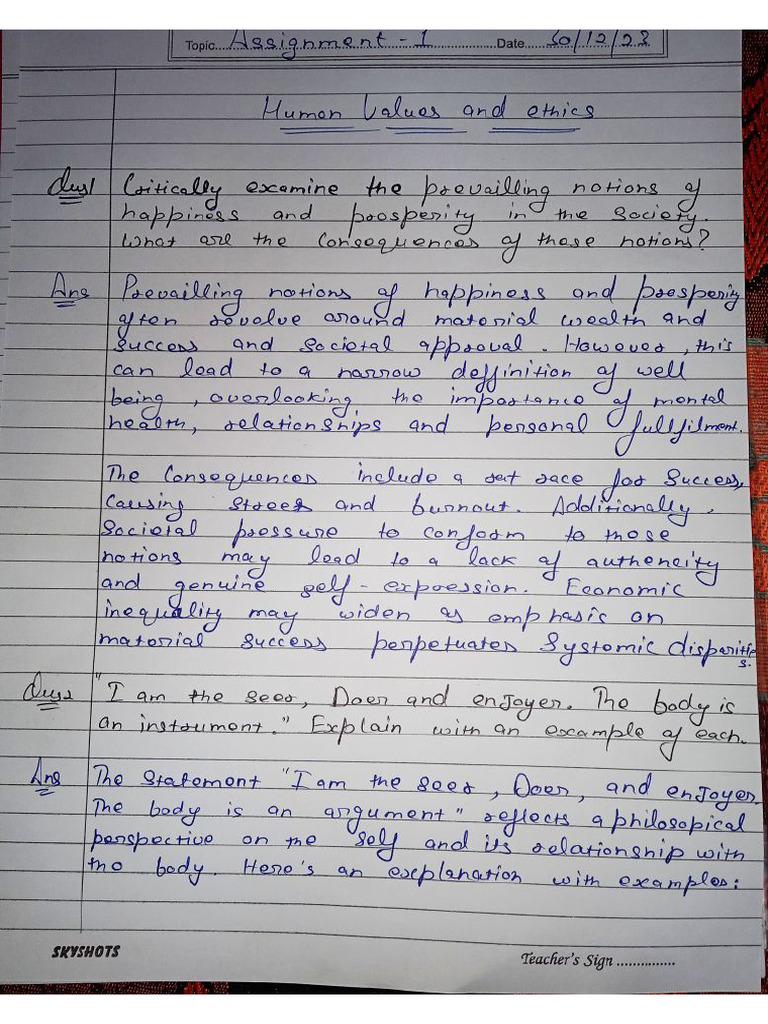 Topic....Assignment - 1....Date....30/12/23
Human Values and ethics
Ques1 Critically examine the prevailling notions of
happiness and prosperity in the society.
What are the consequences of those notions?
Ans Prevailling notions of happiness and prosperity
often revolve around material wealth and
success and societal approval. However, this
can lead to a narrow deffinition of well
being, overlooking the importance of mental
health, relationships and personal fullfilment.
The Consequences include a rat race for success,
causing strees and burnout. Additionally,
societal pressure to conform to those
notions may lead to a lack of authencity
and genuine self-expression. Economic
inequality may widen as emphasis on
material success perpetuates Systemic disparities.
Ques2 "I am the seer, Doer and enjoyer. The body is
an instrument." Explain with an example of each.
Ans The statement "I am the seer, Doer, and enjoyer.
The body is an argument" reflects a philosopical
perspective on the self and its relationship with
the body. Here's an explanation with examples:
SKYSHOTS Teacher's Sign ................